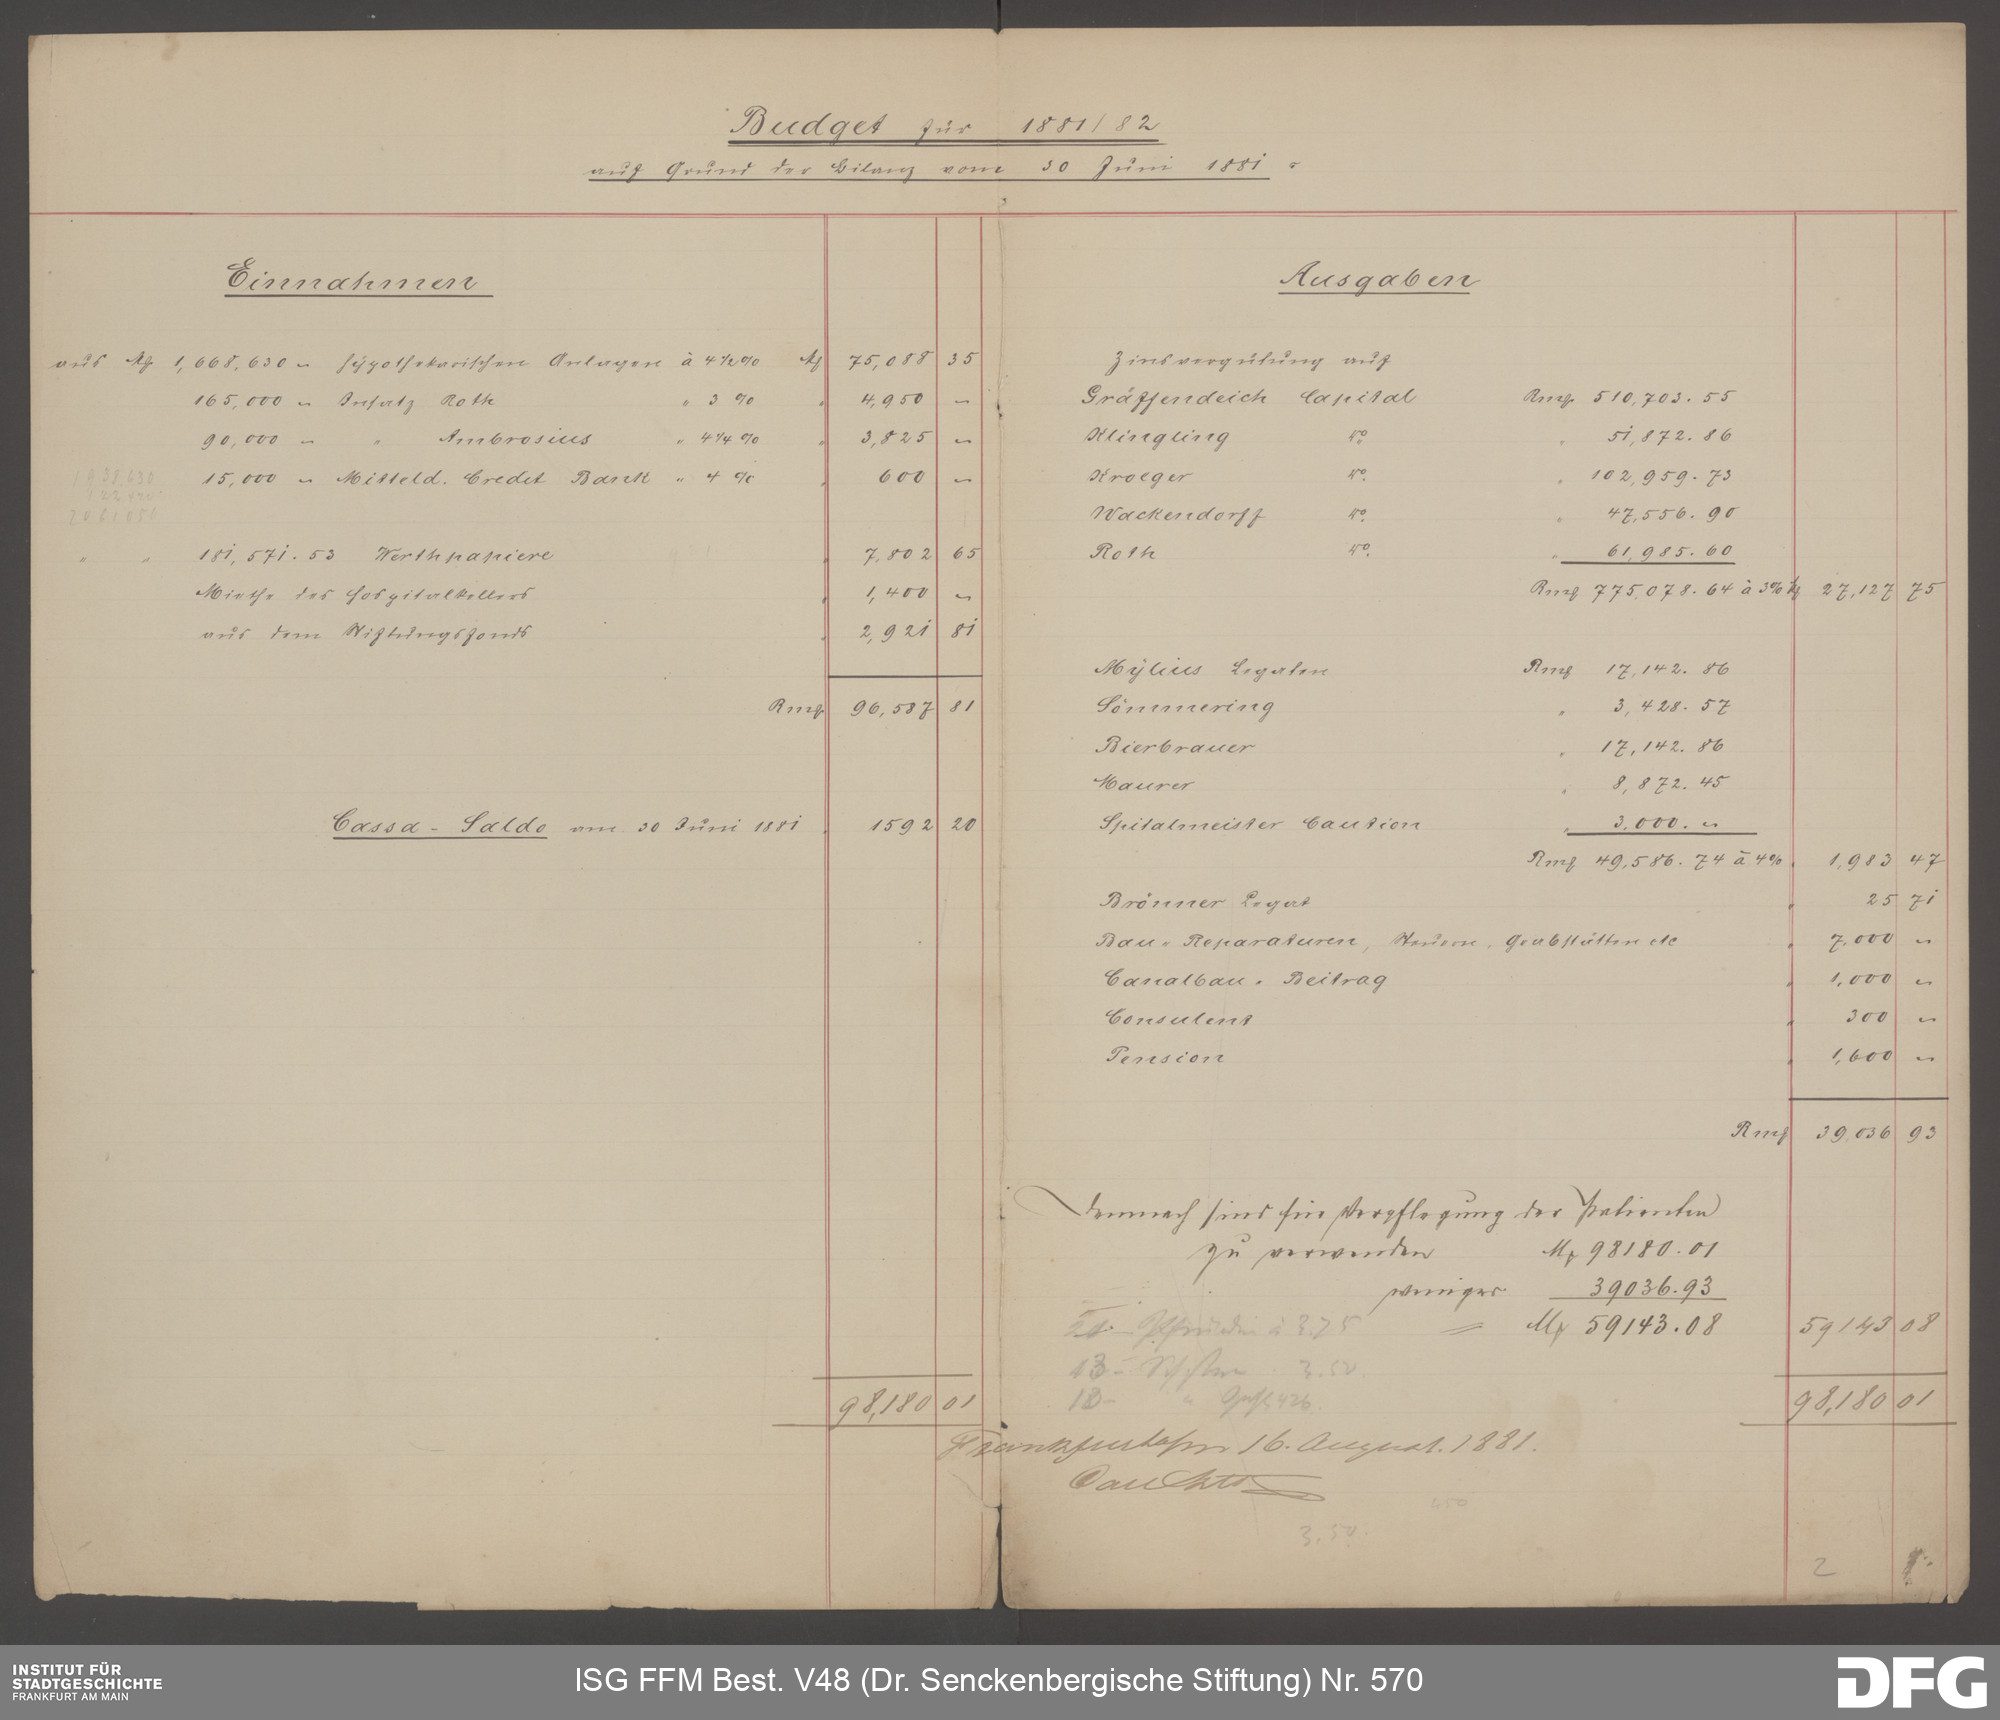 Budget für 1881/82
auf Grund der Bilanz vom 30 Juni 1881.
Einnahmen
aus M 1,668,630 „ hypothekarischen Anlagen à 4½% M 75,088 35
165,000 „ Insatz Roth „ 3 % „ 4,950 „
90,000 „ „ Ambrosius „ 4¼% „ 3,825 „
15,000 „ Mitteld. Credit Bank „ 4 % „ 600 „
1938,630
122,420
2061050
„ „ 181,571.53 Werthpapiere „ 7,802 65
Miethe des Hospitalkellers „ 1,400 „
aus dem Stiftungsfonds „ 2,921 81
Rmf 96,587 81
Cassa-Saldo am 30 Juni 1881 „ 1592 20
98,180 01
Ausgaben
Zinsvergütung auf
Gräffendeich Capital Rmf 510,703.55
Klingling do. „ 51,872.86
Kroeger do. „ 102,959.73
Wackendorff do. „ 47,556.90
Roth do. „ 61,985.60
Rmf 775,078.64 à 3½% M 27,127 75
Mylius Legaten Rmf 17,142.86
Sömmering „ 3,428.57
Bierbrauer „ 17,142.86
Maurer „ 8,872.45
Spitalmeister Caution „ 3,000. „
Rmf 49,586.74 à 4% „ 1,983 47
Brönner Legat „ 25 71
Bau-Reparaturen, Steuern, Grabstätten etc „ 7,000 „
Canalbau-Beitrag „ 1,000 „
Consulent „ 300 „
Pension „ 1,600 „
Rmf 39,036 93
Demnach sind für Verpflegung der Patienten
zu verwenden M 98180.01
weniger 39036.93
= M 59143.08 59143 08
à 3.75
13 - 3.50.
13 - „
98,180 01
Frankfurt a/m 16. August. 1881.
450
3.50.
2
INSTITUT FÜR
STADTGESCHICHTE
FRANKFURT AM MAIN
ISG FFM Best. V48 (Dr. Senckenbergische Stiftung) Nr. 570
DFG